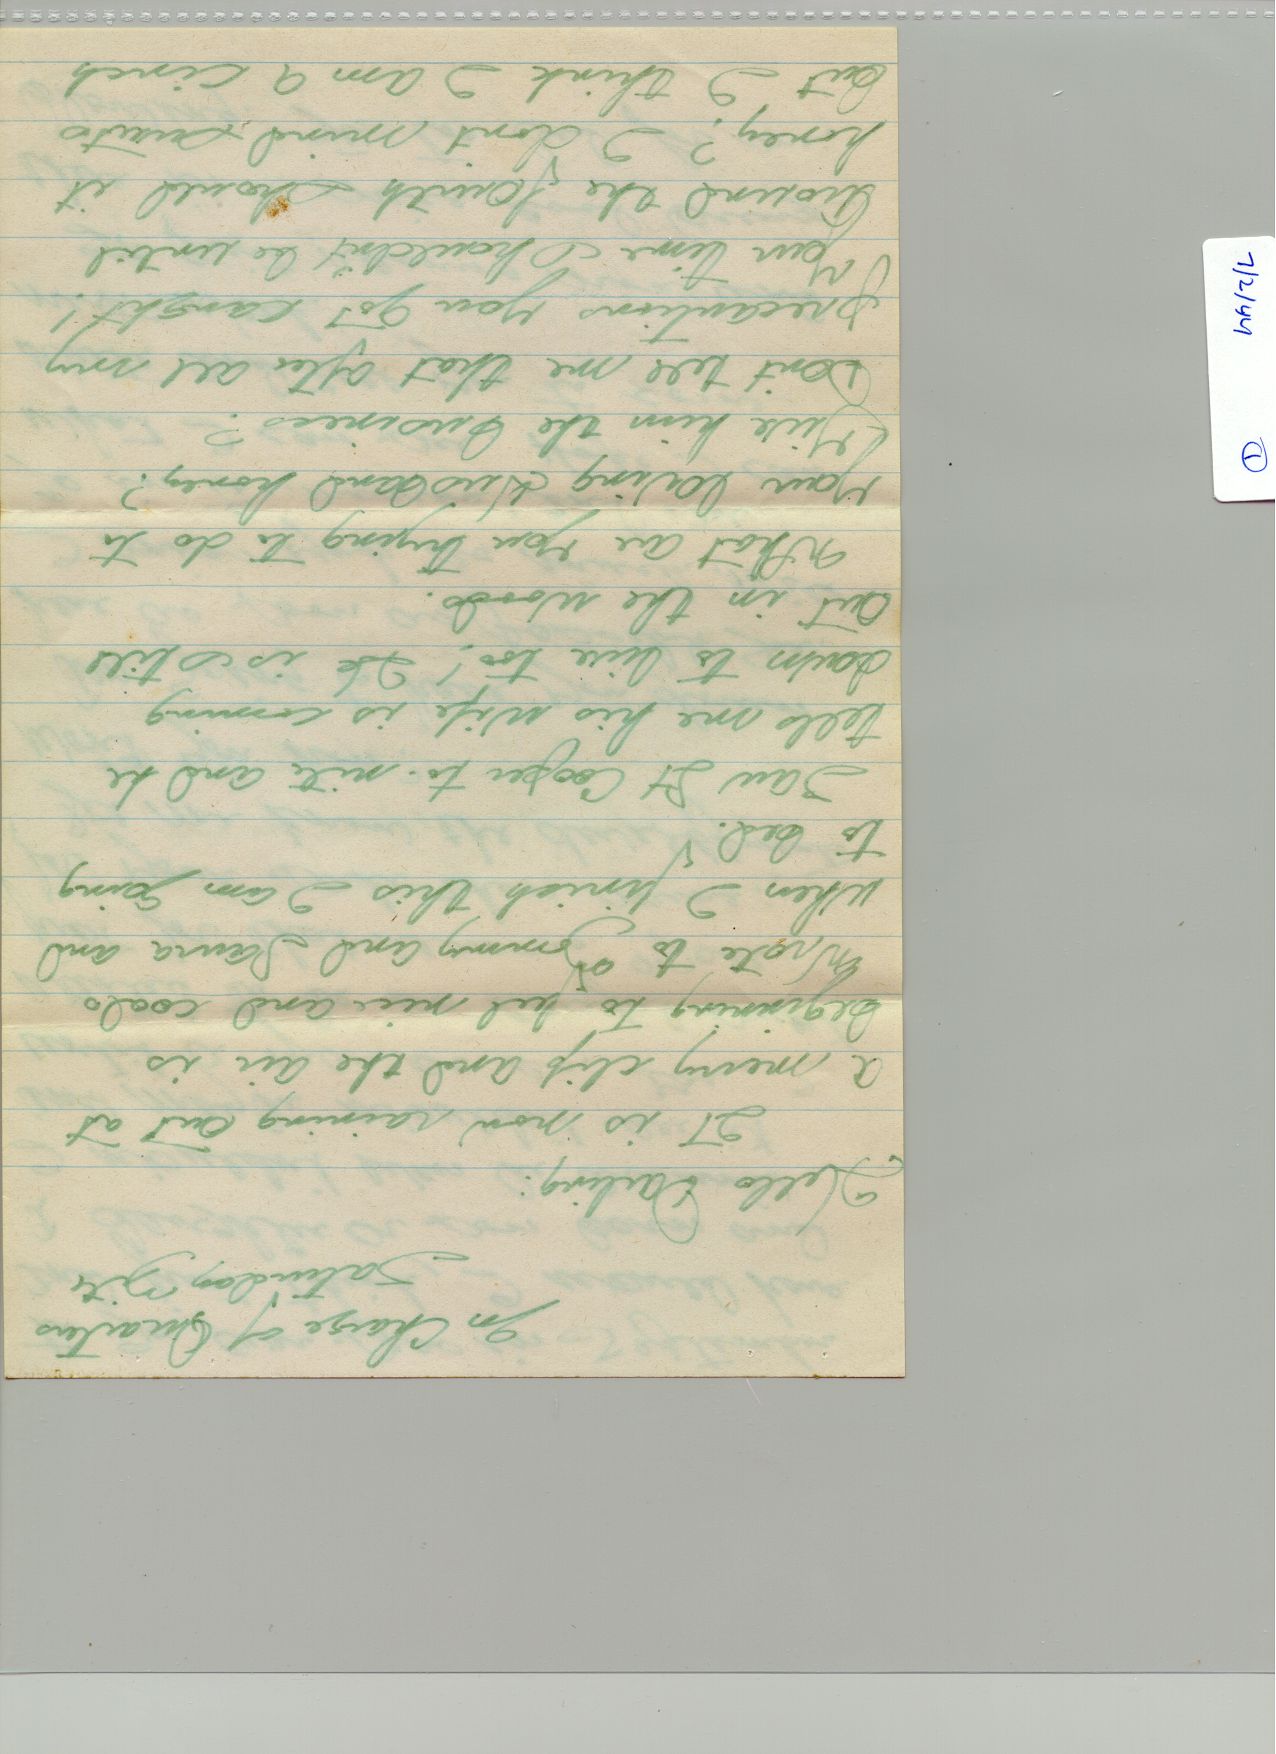 7/2/44
①
In Charge of Quarters
Saturday Nite
Hello Darling:
It is now raining out at
a merry clip and the air is
beginning to feel nice and cool.
Wrote to Tommy and Laura and
when I finish this I am going
to bed.
Saw Lt Cooper to-nite and he
tells me his wife is coming
down to live too! He is still
out in the woods.
What are you trying to do to
your loving Husband honey?
Give him the business?
Don't tell me that after all my
precautions you got caught!
Your time shouldn't be until
around the fourth should it
honey? I dont mind
but I think I am a cinch